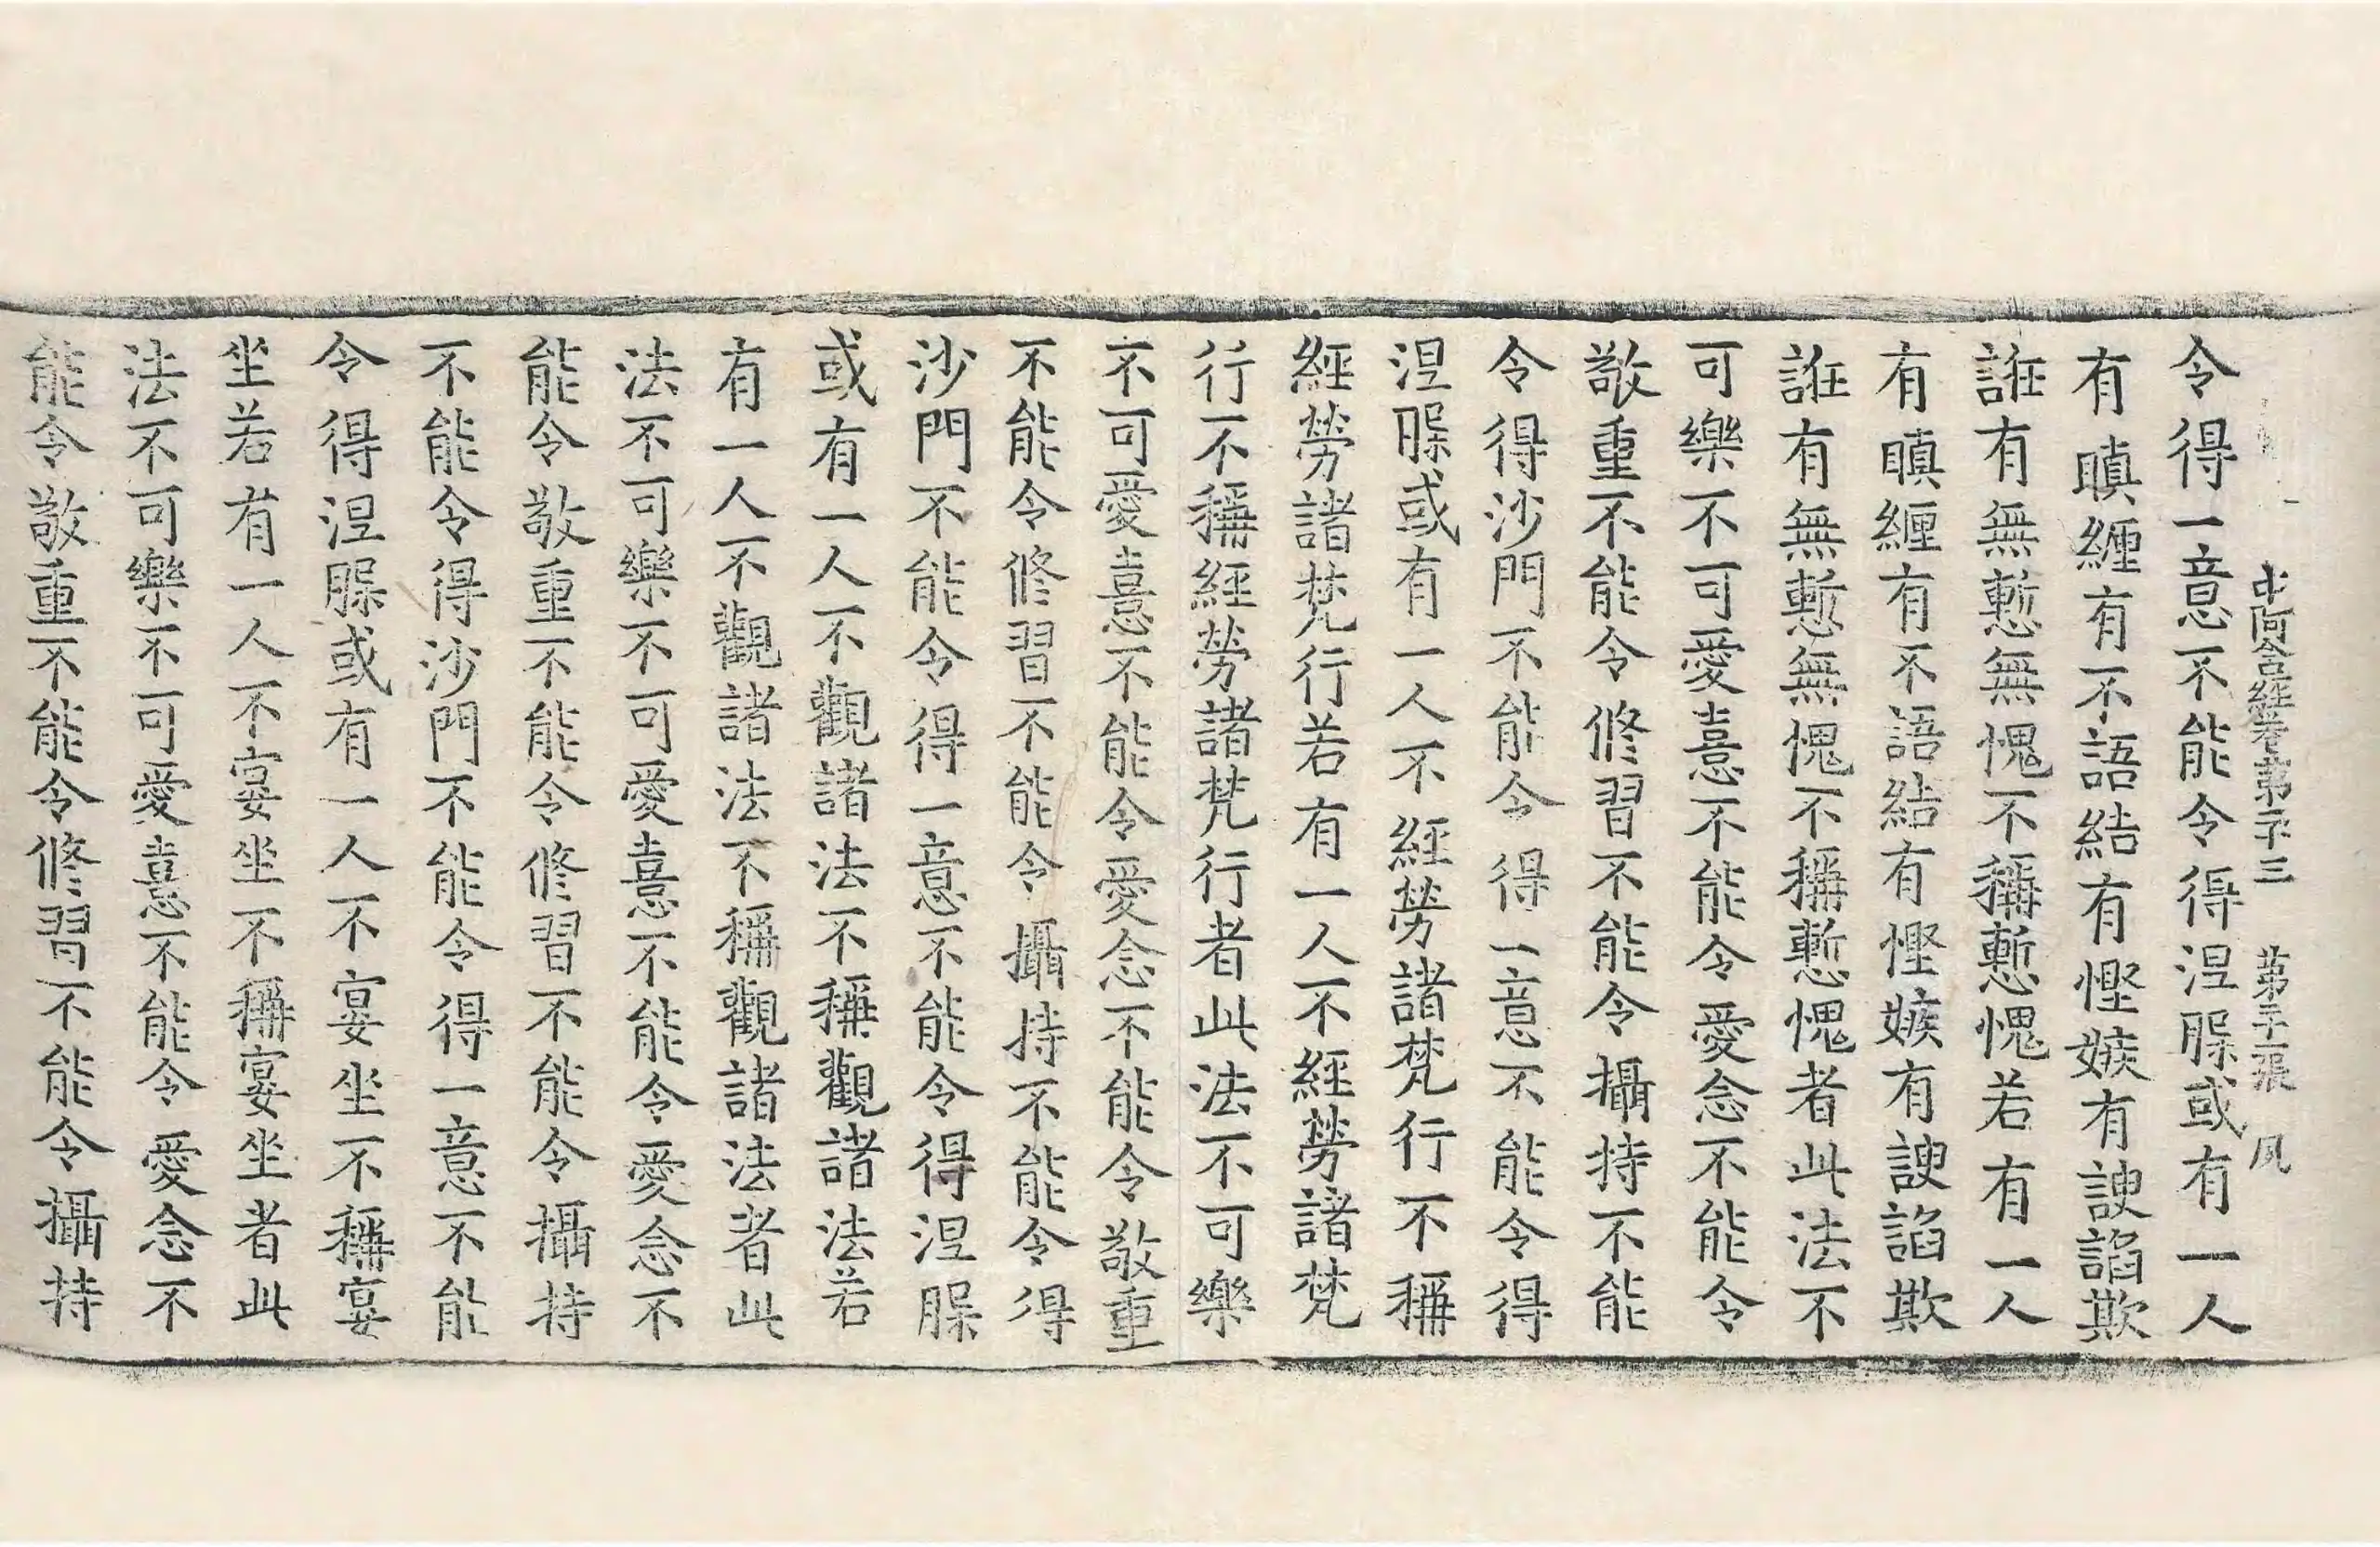 中阿含經卷第二十三 第二十張 夙
令得一意不能令得涅槃或有一人
有瞋纏有不語結有慳嫉有諛諂欺
誑有無慙無愧不稱慙愧若有一人
有瞋纏有不語結有慳嫉有諛諂欺
誑有無慙無愧不稱慙愧者此法不
可樂不可愛憙不能令愛念不能令
敬重不能令修習不能令攝持不能
令得沙門不能令得一意不能令得
涅槃或有一人不經勞諸梵行不稱
經勞諸梵行若有一人不經勞諸梵
行不稱經勞諸梵行者此法不可樂
不可愛憙不能令愛念不能令敬重
不能令修習不能令攝持不能令得
沙門不能令得一意不能令得涅槃
或有一人不觀諸法不稱觀諸法若
有一人不觀諸法不稱觀諸法者此
法不可樂不可愛憙不能令愛念不
能令敬重不能令修習不能令攝持
不能令得沙門不能令得一意不能
令得涅槃或有一人不宴坐不稱宴
坐若有一人不宴坐不稱宴坐者此
法不可樂不可愛憙不能令愛念不
能令敬重不能令修習不能令攝持